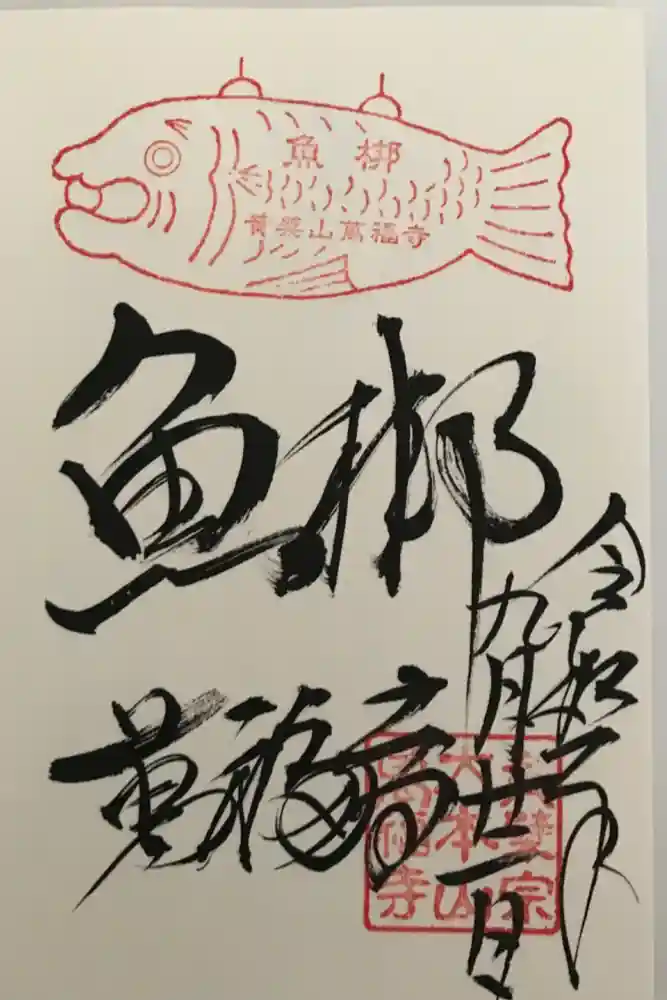 魚梆
黄檗山萬福寺
魚梆
萬福
令和二年
九月廿一日
黄檗宗
大本山
萬福寺